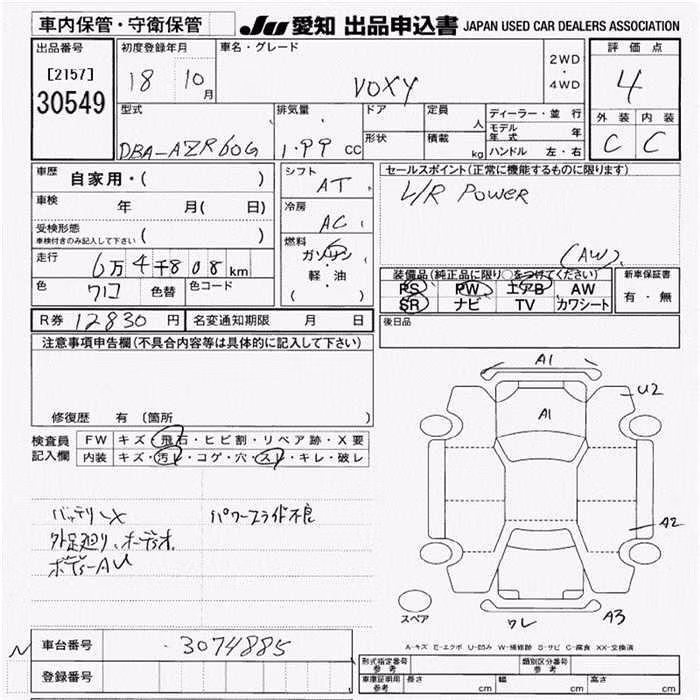 車内保管・守衛保管
JU 愛知 出品申込書 JAPAN USED CAR DEALERS ASSOCIATION
出品番号 初度登録年月 車名・グレード 評価点
[2157] 18 10月 VOXY 2WD・4WD 4
30549
型式 排気量 ドア 定員 人 ディーラー・並 行 外装 内装
モデル年式 年
DBA-AZR60G 1.99 CC 形状 積載 kg ハンドル 左・右 C C
車歴 自家用・( ) シフト AT セールスポイント(正常に機能するものに限ります)
L/R Power
車検 年 月( 日) 冷房 AC
受検形態 ( )
車検付きのみ記入して下さい
燃料 ガソリン・軽・油 ( ) (AW)
走行 6万4千808km 装備品(純正品に限り○をつけてください) 新車保証書
PS PW エアB AW 有・無
色 ワイコ 色替 色コード SR ナビ TV カワシート
R券 12830円 名変通知期限 月 日 後日品
注意事項申告欄(不具合内容等は具体的に記入して下さい)
A1
U2
A1
修復歴 有 (箇所 )
検査員記入欄 FW キズ・飛石・ヒビ割・リペア跡・X要
内装 キズ・汚レ・コゲ・穴・スレ・キレ・破レ
バッテリーX パワースライド不良
A2
外足廻り、オーディオ.
ボディーAU
スペア ワレ A3
N 車台番号 -3074885
A-キズ E-エクボ U-凹み W-補修跡 S-サビ C-腐食 XX-交換済
登録番号
形式指定番号 参考 類別区分番号 参考
車庫証明用 参考 長さ cm 幅 cm 高さ cm